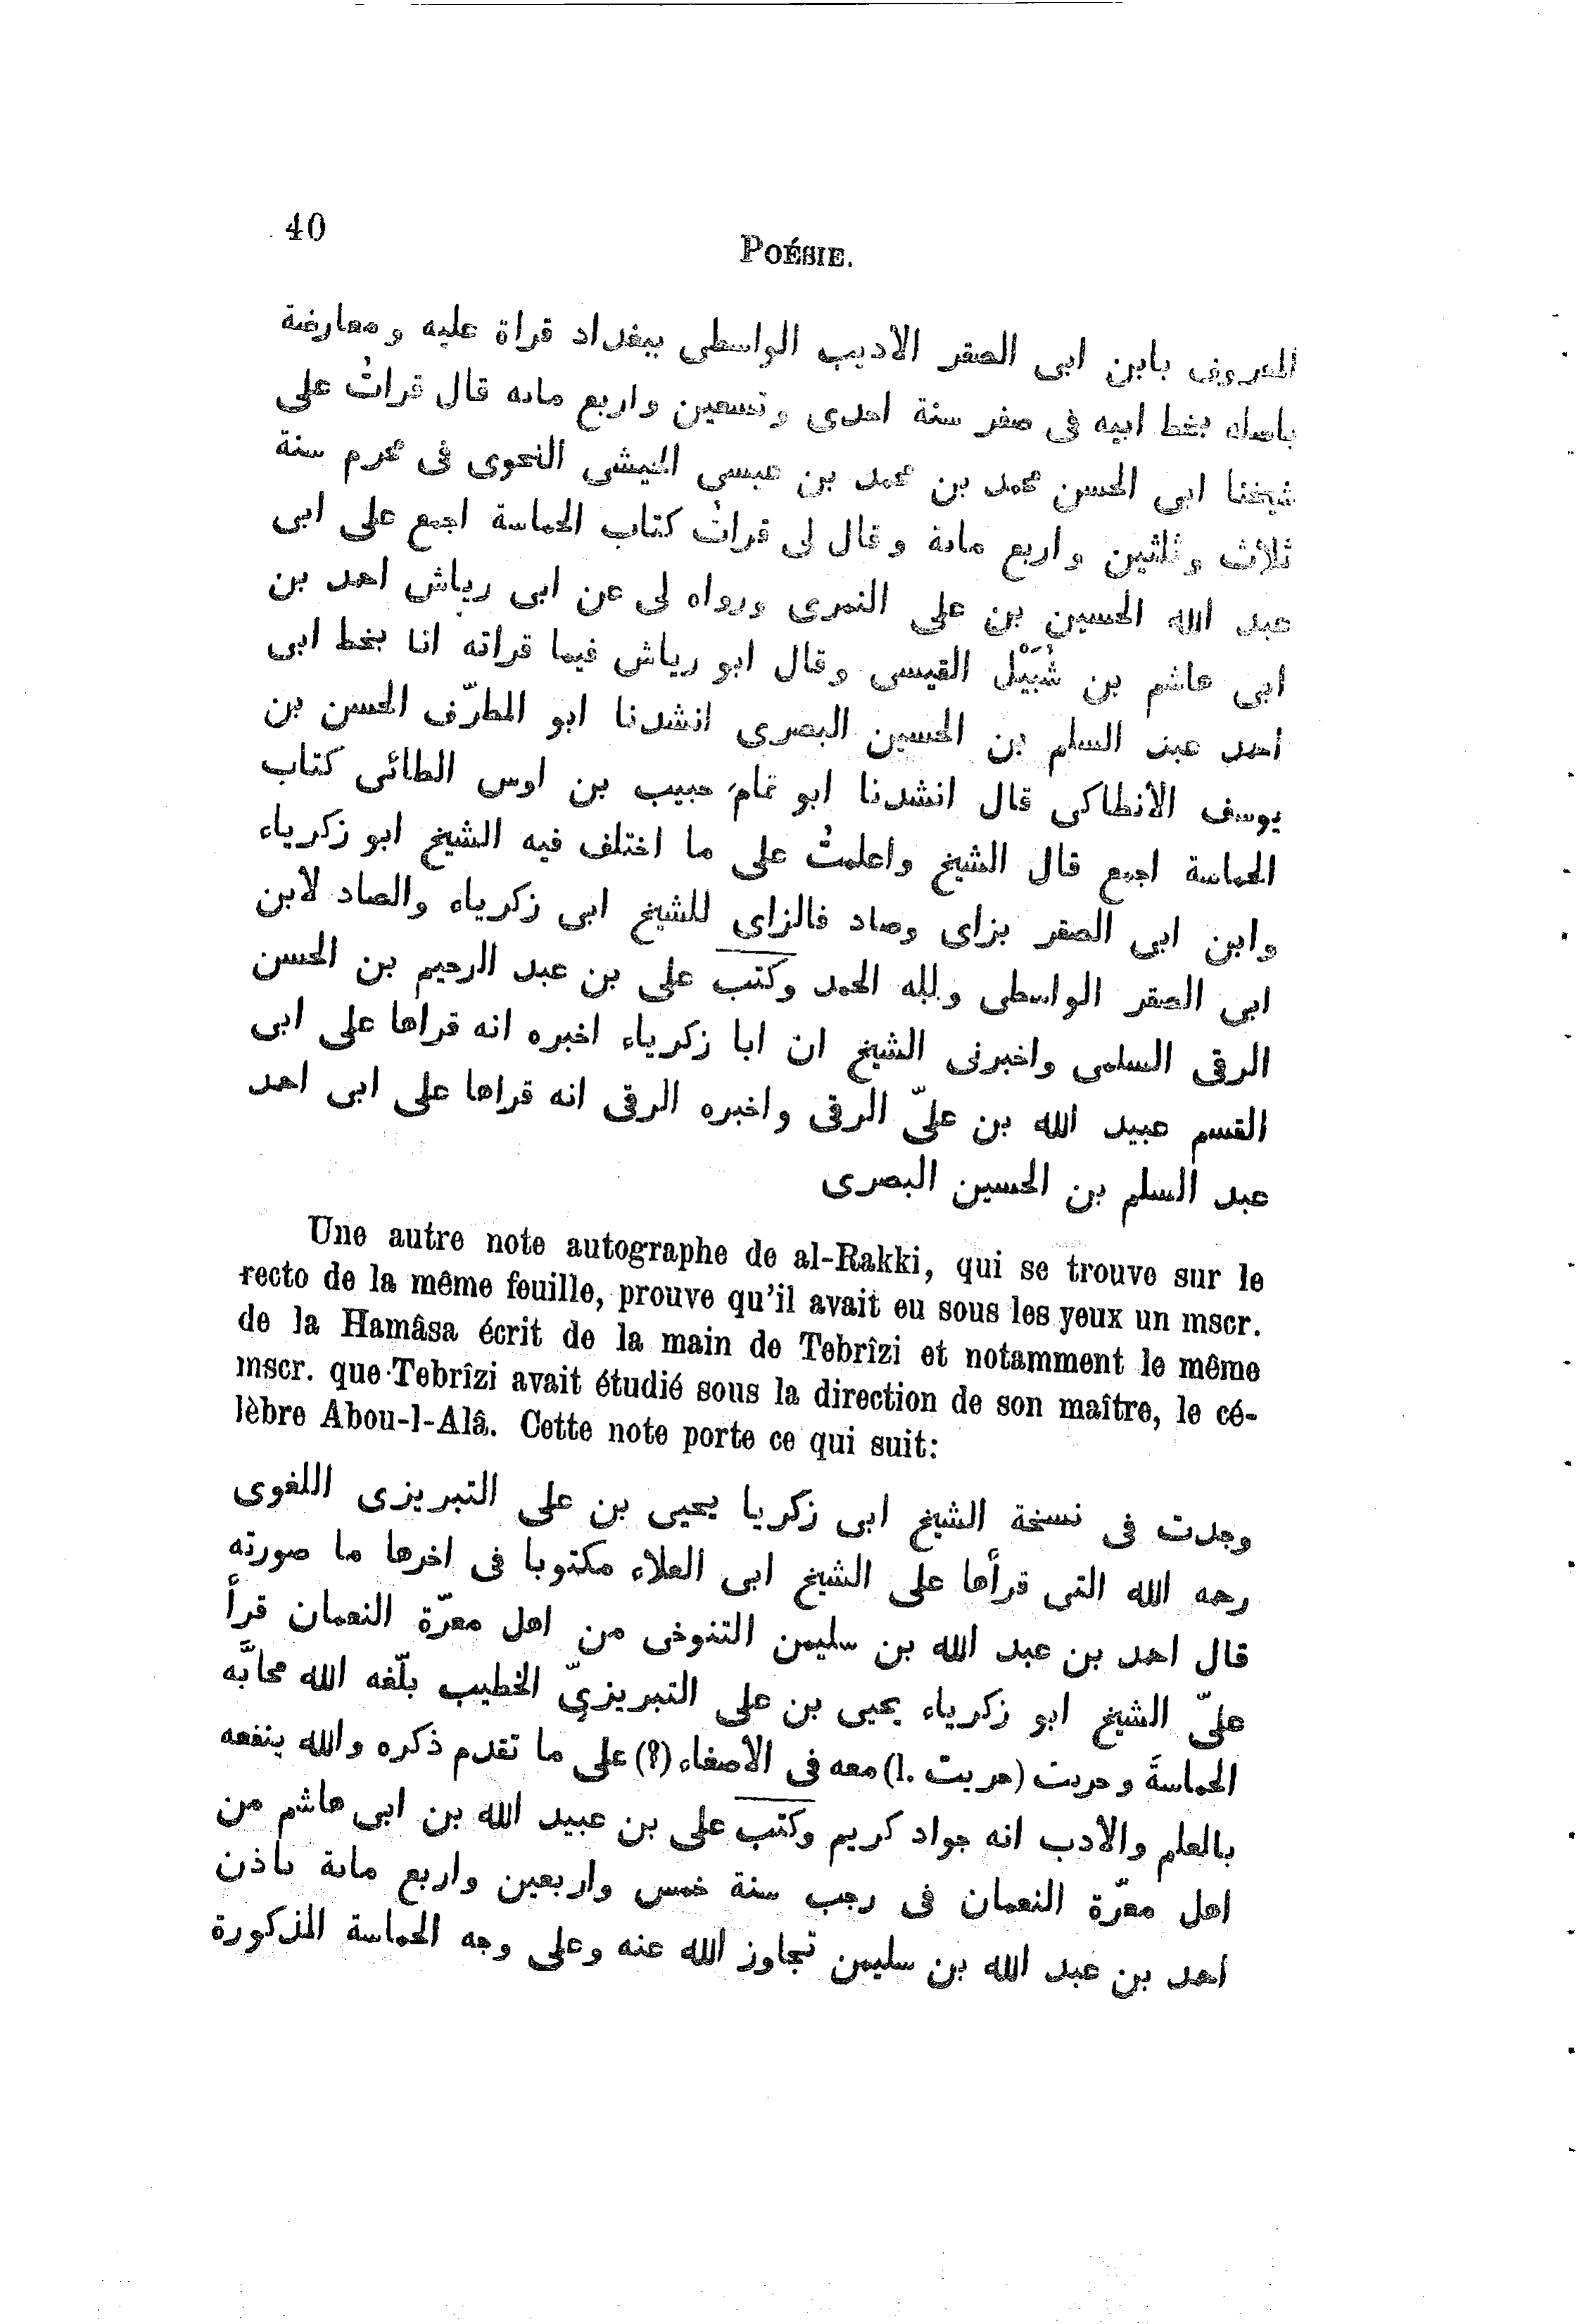 40
POÉSIE.
المعروف بابن ابى الصقر الاديب الواسطى ببغداد قراة عليه ومعارضة
باصله بخط ابيه فى صفر سنة احدى وتسعين واربع مائه قال قراتُ على
شيخنا ابى الحسن محمد بن محمد بن عيسى الخيشى النحوى فى محرم سنة
ثلاث وثلثين واربع مائة وقال لى قراتُ كتاب الحماسة اجمع على ابى
عبد الله الحسين بن على النمرى ورواه لى عن ابى رياش احمد بن
ابى هاشم بن شُبَيْل القيسى وقال ابو رياش فيما قراته انا بخط ابى
احمد عبد السلم بن الحسين البصرى انشدنا ابو المطرّف الحسن بن
يوسف الانطاكى قال انشدنا ابو تمام حبيب بن اوس الطائى كتاب
الحماسة اجمع قال الشيخ واعلمتُ على ما اختلف فيه الشيخ ابو زكرياء
وابن ابى الصقر بزاى وصاد فالزاى للشيخ ابى زكرياء والصاد لابن
ابى الصقر الواسطى ولله الحمد وكتب على بن عبد الرحيم بن الحسن
الرقى السلمى واخبرنى الشيخ ان ابا زكرياء اخبره انه قراها على ابى
القسم عبيد الله بن علىّ الرقى واخبره الرقى انه قراها على ابى احمد
عبد السلم بن الحسين البصرى
Une autre note autographe de al-Rakki, qui se trouve sur le
recto de la même feuille, prouve qu'il avait eu sous les yeux un mscr.
de la Hamâsa écrit de la main de Tebrîzi et notamment le même
mscr. que Tebrîzi avait étudié sous la direction de son maître, le cé-
lèbre Abou-l-Alâ. Cette note porte ce qui suit:
وجدت فى نسخة الشيخ ابى زكريا يحيى بن على التبريزى اللغوى
رحمه الله التى قرأها على الشيخ ابى العلاء مكتوبا فى اخرها ما صورته
قال احمد بن عبد الله بن سليمن التنوخى من اهل معرّة النعمان قرأ
علىّ الشيخ ابو زكرياء يحيى بن على التبريزىّ الخطيب بلّغه الله محابَّه
الحماسةَ وحربت (هربت .l) معه فى الاصغاء (?) على ما تقدم ذكره والله ينفعه
بالعلم والادب انه جواد كريم وكتب على بن عبيد الله بن ابى هاشم من
اهل معرّة النعمان فى رجب سنة خمس واربعين واربع مائة باذن
احمد بن عبد الله بن سليمن تجاوز الله عنه وعلى وجه الحماسة المذكورة